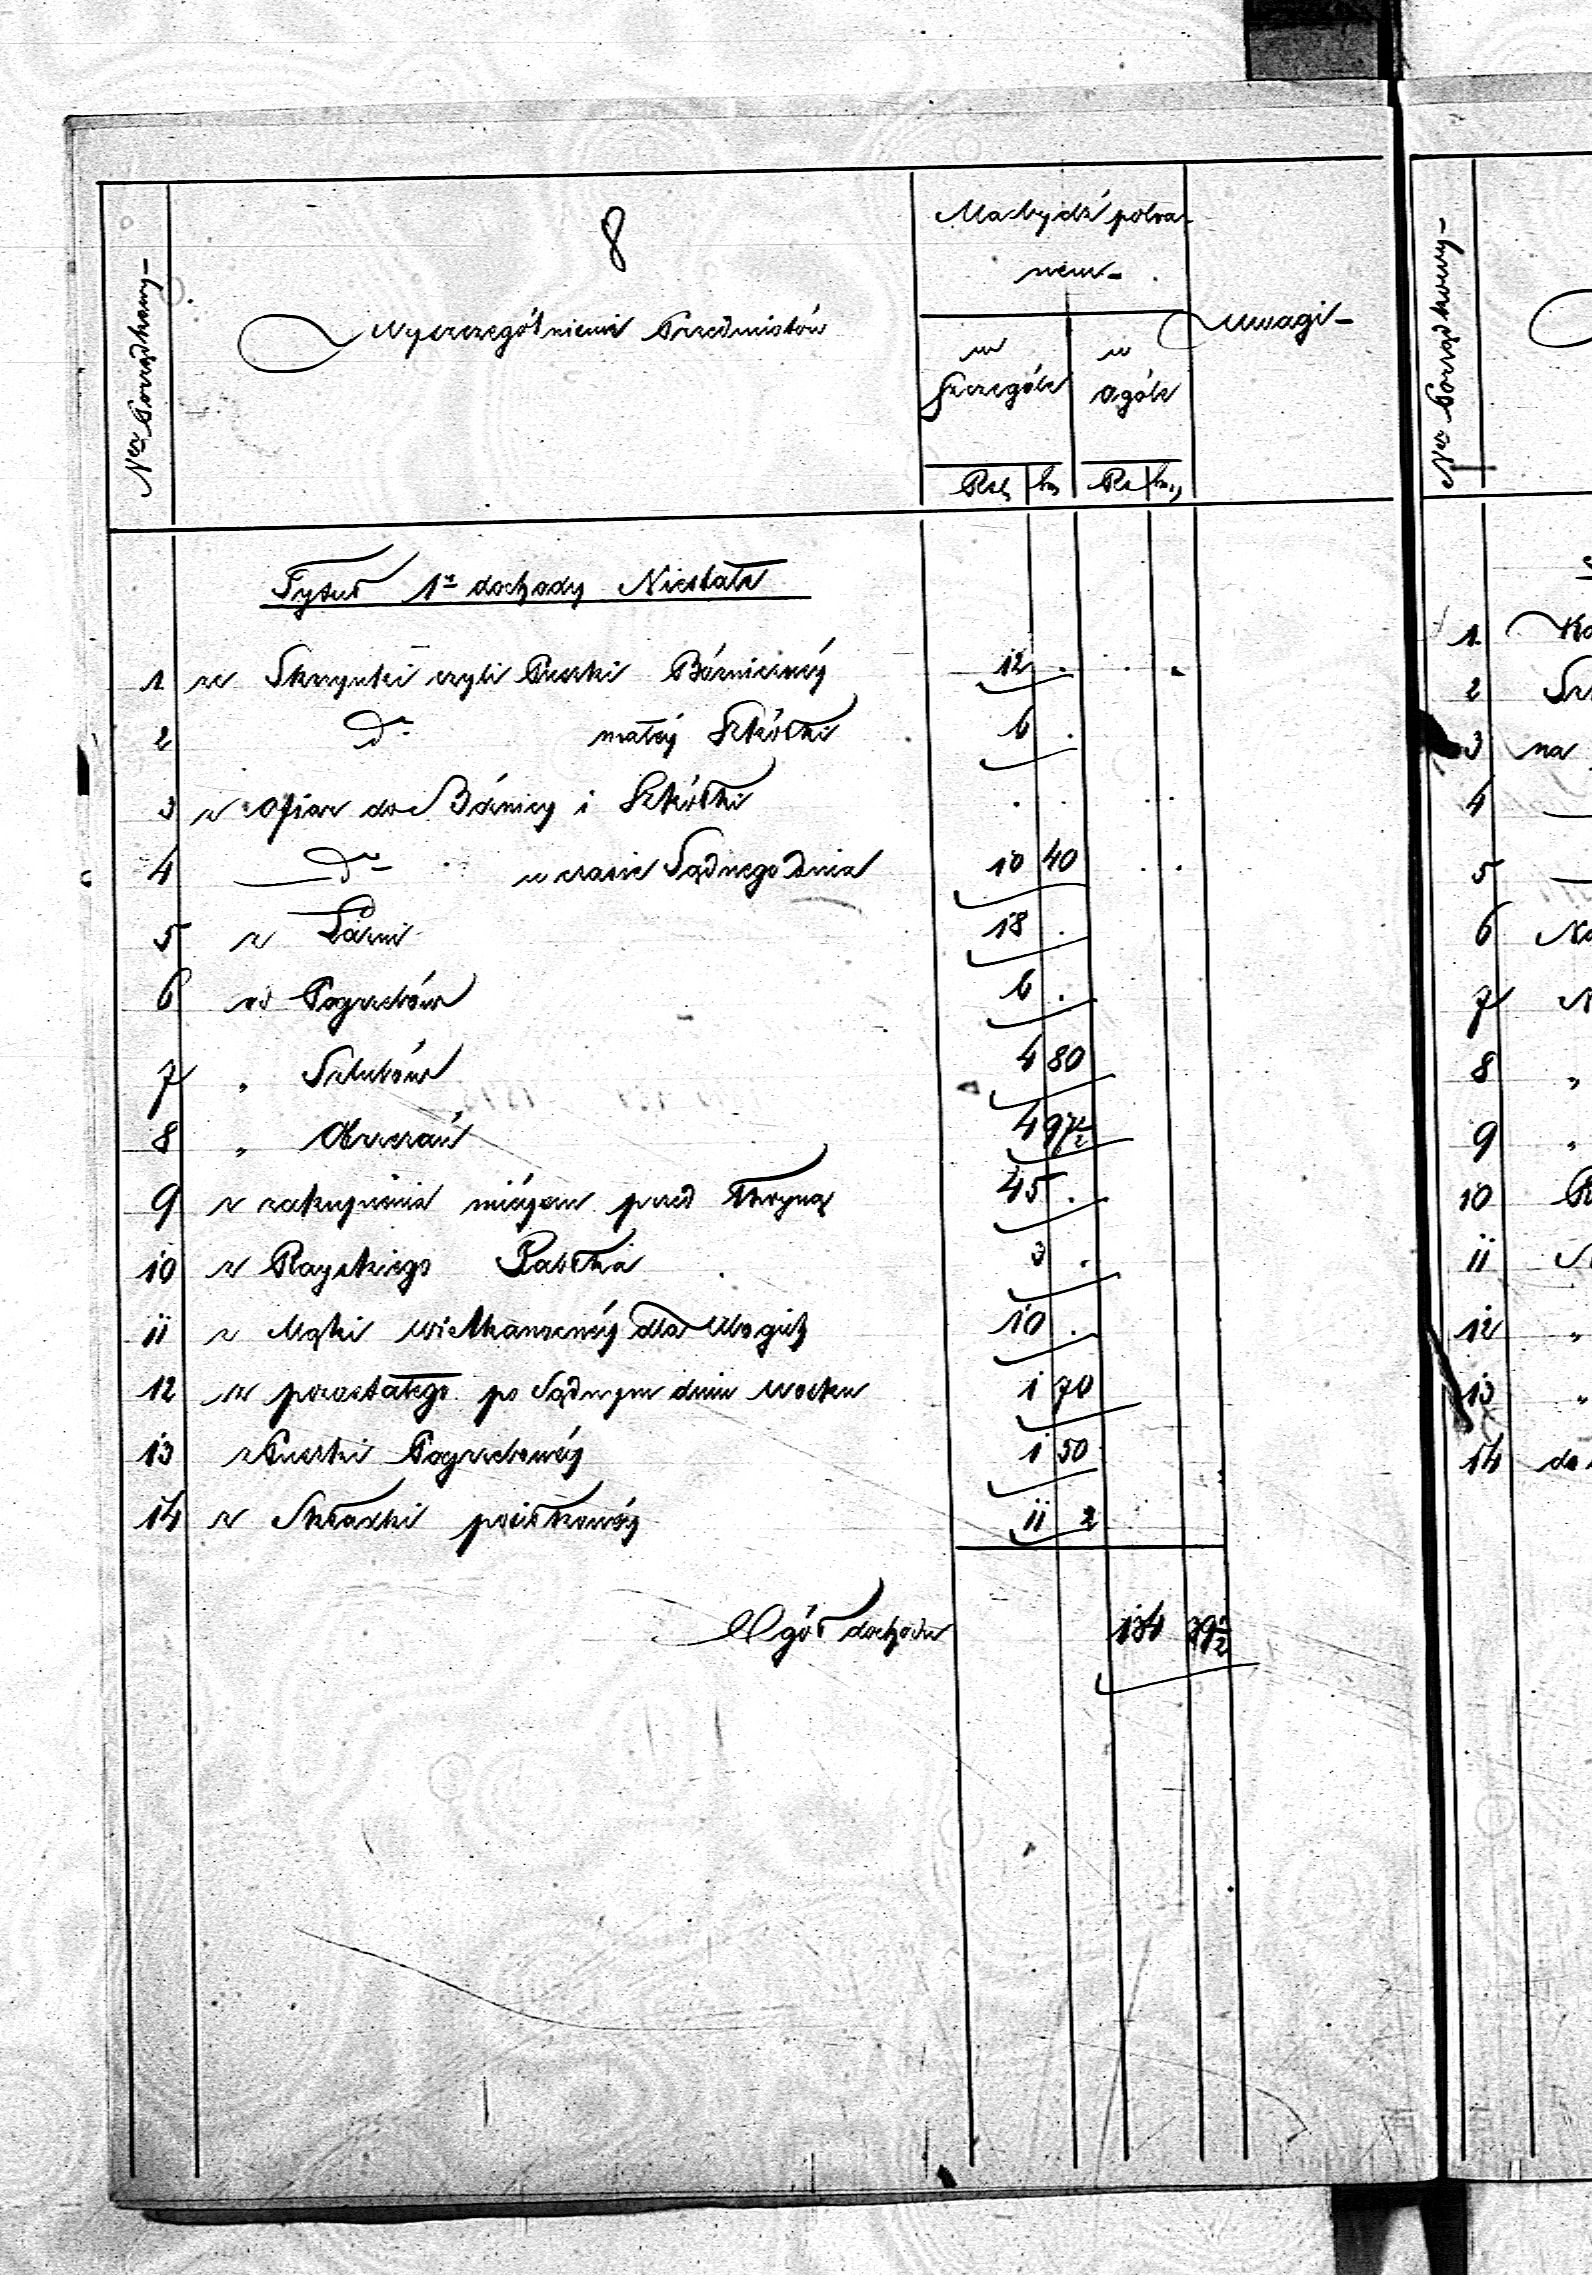 8
Ner Porządkowy
Wyszczególnienie Przedmiotów
Ma być pobra-
nem
w Szczególe
w Ogóle
Uwagi
Rsr k Rs k
Tytuł 1r dochody Niestałe
1 ze Skrzynki czyli Puszki Bóżniczéj 12 .
2 do małéj Szkółki 6 .
3 z ofiar do Bóżnicy i Szkółki . .
4 do w czasie Sądnego dnia 10 40
5 z Łaźni 18 .
6 od Pogrzebów 6 .
7 „ Szlubów 4 80
8 „ Obrzezań 4 97½
9 z zakupienia miéjsca przed Thoryną 45 .
10 z Rayskiego Jabłka 3 .
11 z Mąki wielkanocnéj dla Ubogich 10 .
12 z pozostałego po Sądnym dniu wosku 1 70
13 z Puszki Pogrzebowéj 1 50
14 z Składki 11 2
Ogół dochodu 134 39½
Ner Porządkowy
1 Ko
2 Sz
3 na
4
5
6 Na
7 N
8 „
9 „
10 R
11
12 „
13 „
14 do